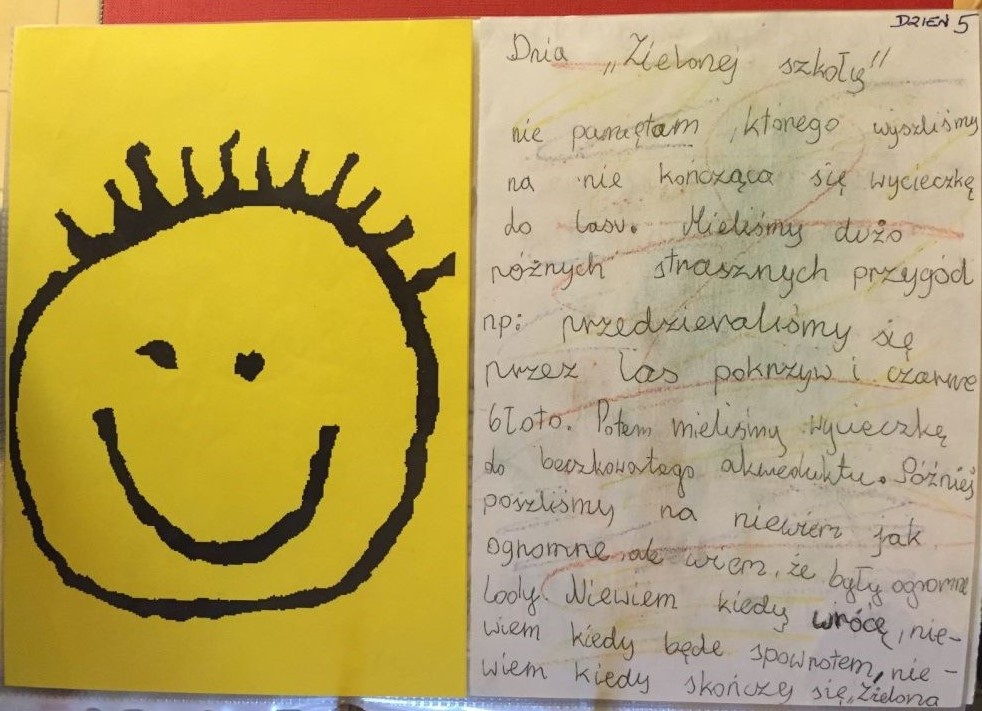 DZIEŃ 5
Dnia „Zielonej szkoły"
nie pamiętam, którego wyszliśmy
na nie kończąca się wycieczkę
do lasu. Mieliśmy dużo
różnych strasznych przygód
np: przedzieraliśmy się
przez las pokrzyw i czarne
błoto. Potem mieliśmy wycieczkę
do beczkowatego akweduktu. Później
poszliśmy na niewiem jak
ogromne ale wiem, że były ogromne
lody. Niewiem kiedy wrócę, nie-
wiem kiedy będe spowrotem, nie-
wiem kiedy skończy się „Zielona